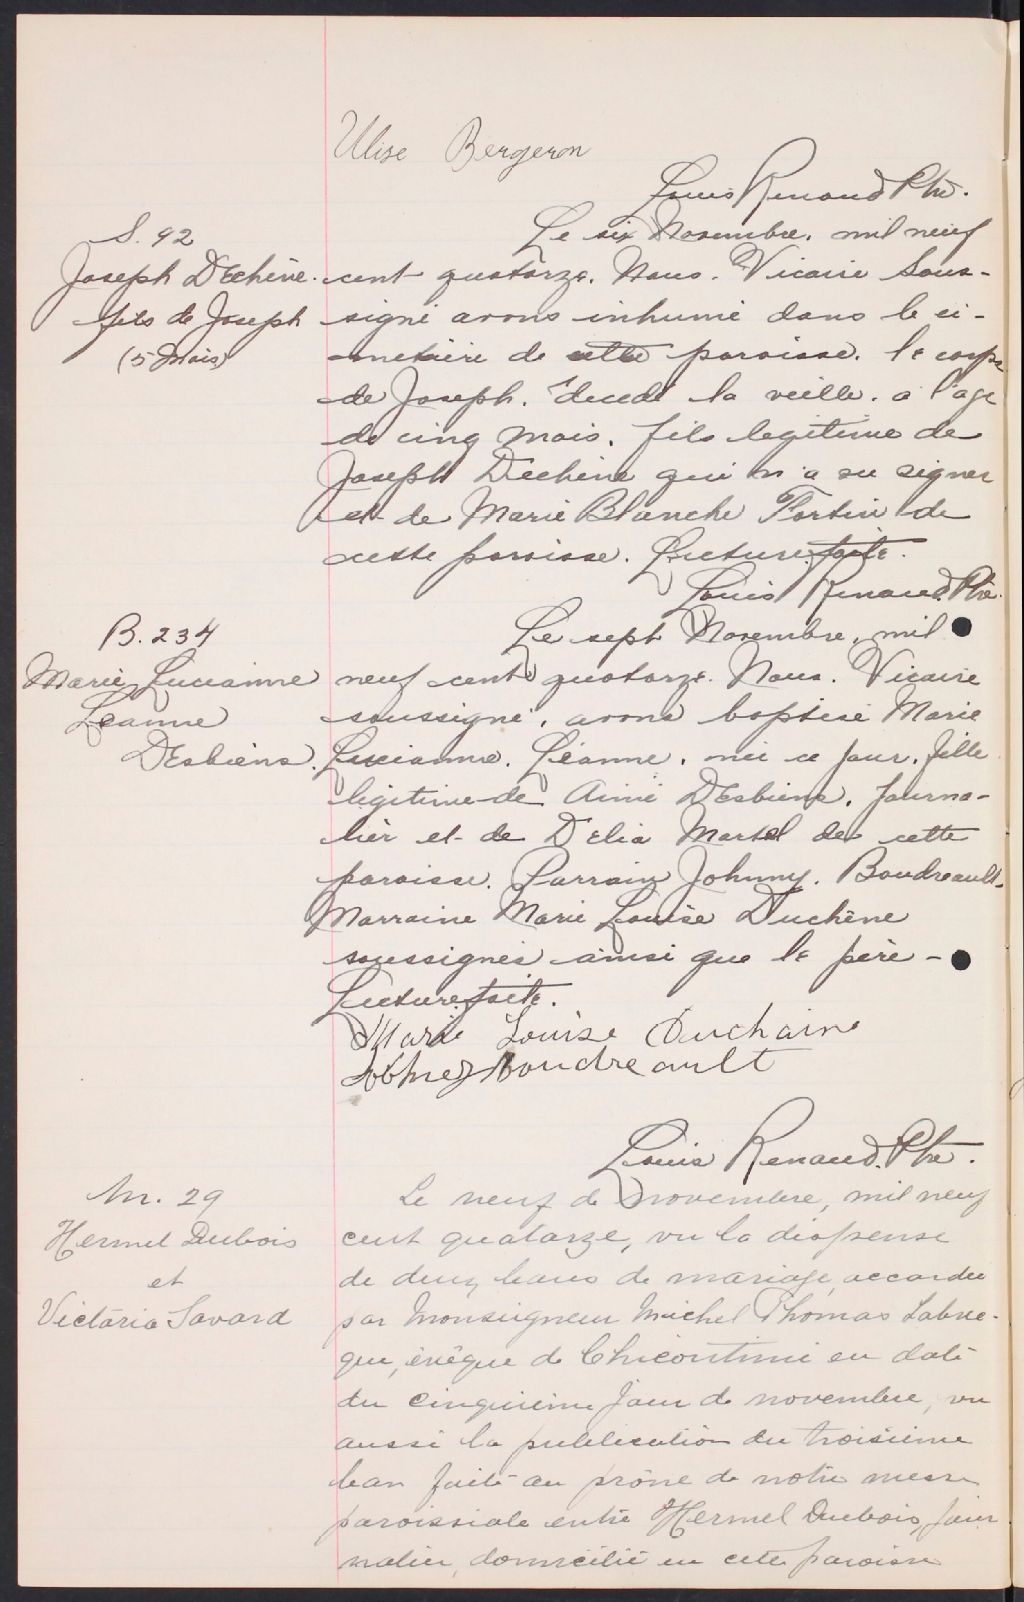 Ulise Bergeron
Louis Renaud Ptre.
S. 92
Joseph DEchêne.
fils de Joseph
(5 Mois)
Le six Novembre. mil neuf
cent quatorze. Nous. Vicaire Sous-
signé avons inhumé dans le ci-
metière de cette paroisse. le corps
de Joseph. décédé la veille. a l'age
de cinq mois. fils legitime de
Joseph Dechêne qui n'a su signer
et de Marie Blanche Fortin de
cette paroisse. Lecture faite.
Louis Renaud Ptre.
B. 234
Marie Lucianne
Leanne
DEsbiens.
Le sept Novembre, mil
neuf cent quatorze. Nous. Vicaire
soussigné, avons baptisé Marie
Lucianne. Léanne. née ce jour. fille
légitime de Aimé DEsbiens. journa-
lier et de Délia Martel de cette
paroisse. Parrain Johnny. Boudreault-
Marraine Marie Louise Duchêne
soussignés ainsi que le père -
Lecture faite.
Marie Louise Duchaine
Boudreault
Louis Renaud. Ptre.
M. 29
Hermel Dubois
et
Victoria Savard
Le neuf de novembre, mil neuf
cent quatorze, vu la dispense
de deux bans de mariage accordée
par Monseigneur Michel Thomas Labrec-
que, évêque de Chicoutimi en date
du cinquième jour de novembre, vu
aussi la publication du troisième
ban faite au prône de notre messe
paroissiale entre Hermel Dubois, jour
nalier, domicilié en cette paroisse